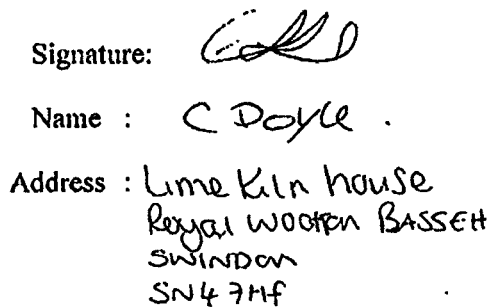 Signature:
Name : C Doyle .
Address : Lime Kiln house
Royal Wootton BASSETT
SWINDON
SN4 7HF